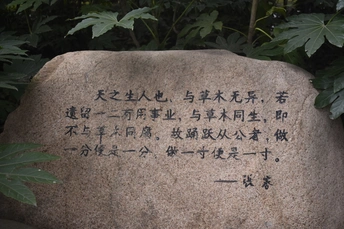 天之生人也,与草木无异,若
遗留一二有用事业,与草木同生,即
不与草木同腐。故踊跃从公者,做
一分便是一分,做一寸便是一寸。
——张謇